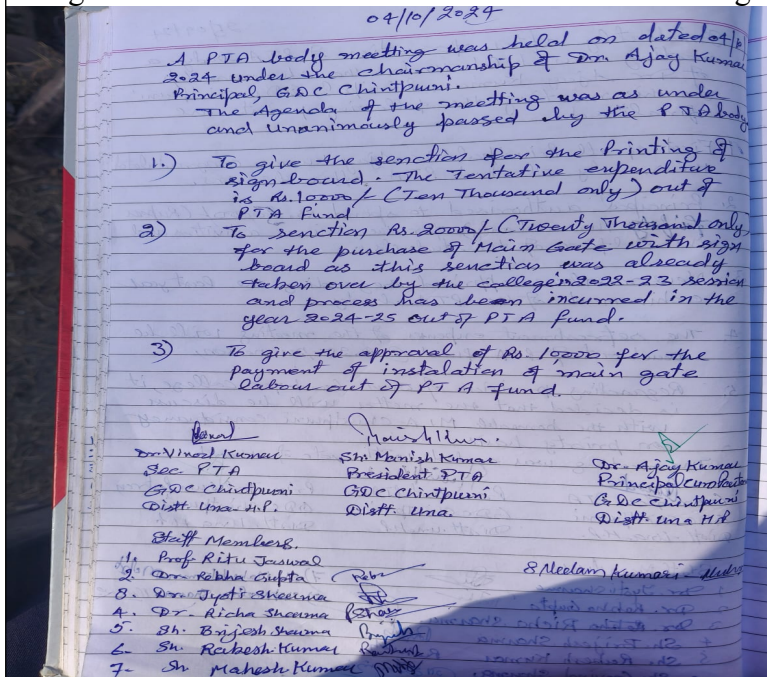 04/10/2024
A PTA body meetting was held on dated 04/10
2024 under the chairmanship of Dr. Ajay Kumar
Principal, GDC Chintpurni.
The Agenda of the meetting was as under
and unanimously passed by the PTA body
1.) To give the senction for the Printing of
sign board. The Tentative expenditure
is Rs. 10000/- (Ten Thousand only) out of
PTA Fund
2) To senction Rs. 20000/- (Twenty Thousand only)
for the purchase of Main Gate with sign
board as this senction was already
taken over by the college in 2022-23 session
and process has been incurred in the
year 2024-25 out of PTA fund.
3) To give the approval of Rs. 10000 for the
payment of instalation of main gate
labour out of PTA fund.
Dr. Vinod Kumar Sh. Manish Kumar Dr. Ajay Kumar
Sec PTA President PTA Principal cum Patron
GDC Chintpurni GDC Chintpurni GDC Chintpurni
Distt. Una H.P. Distt. Una. Distt. Una H.P
Staff Members.
1. Prof. Ritu Jaswal
2. Dr. Rebha Gupta 8 Neelam Kumari
3. Dr. Jyoti Sharma
4. Dr. Richa Sharma
5. Sh. Brijesh Sharma
6- Sh. Rakesh Kumar
7- Sh Mahesh Kumar